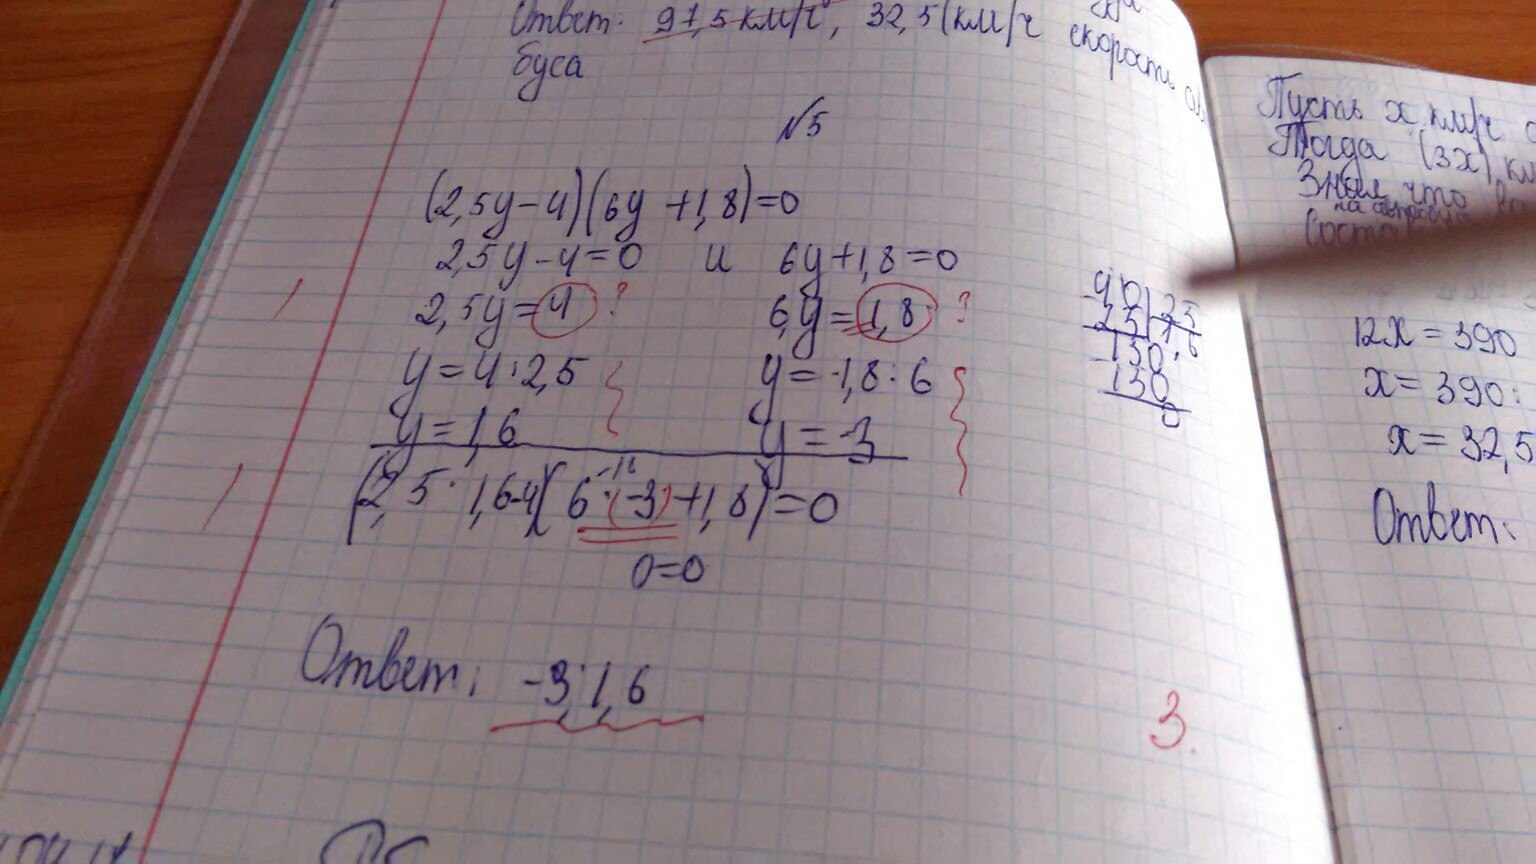 Ответ: 97,5 км/ч, 32,5(км/ч скорость
буса
№5
(2,5y-4)(6y+1,8)=0
2,5y-4=0 и 6y+1,8=0
2,5y=4 ? 6y=1,8 ?
y=4:2,5 y=-1,8:6
y=1,6 y=-3
(2,5·1,6-4)(6·(-3)+1,8)=0
0=0
Ответ: -3;1,6
3.
40 25
25 1,6
150
150
0
Пусть x км/ч
Тогда (3x) км
Зная, что
12x=390
x=390:
x=32,5
Ответ: